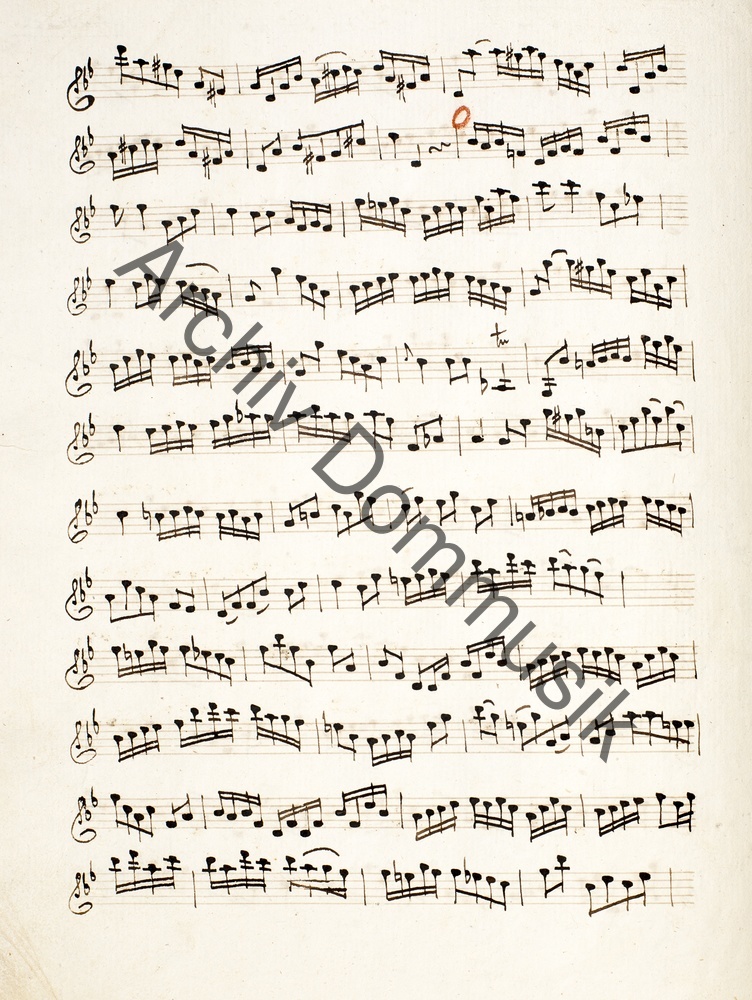 tr
Archiv Dommusik